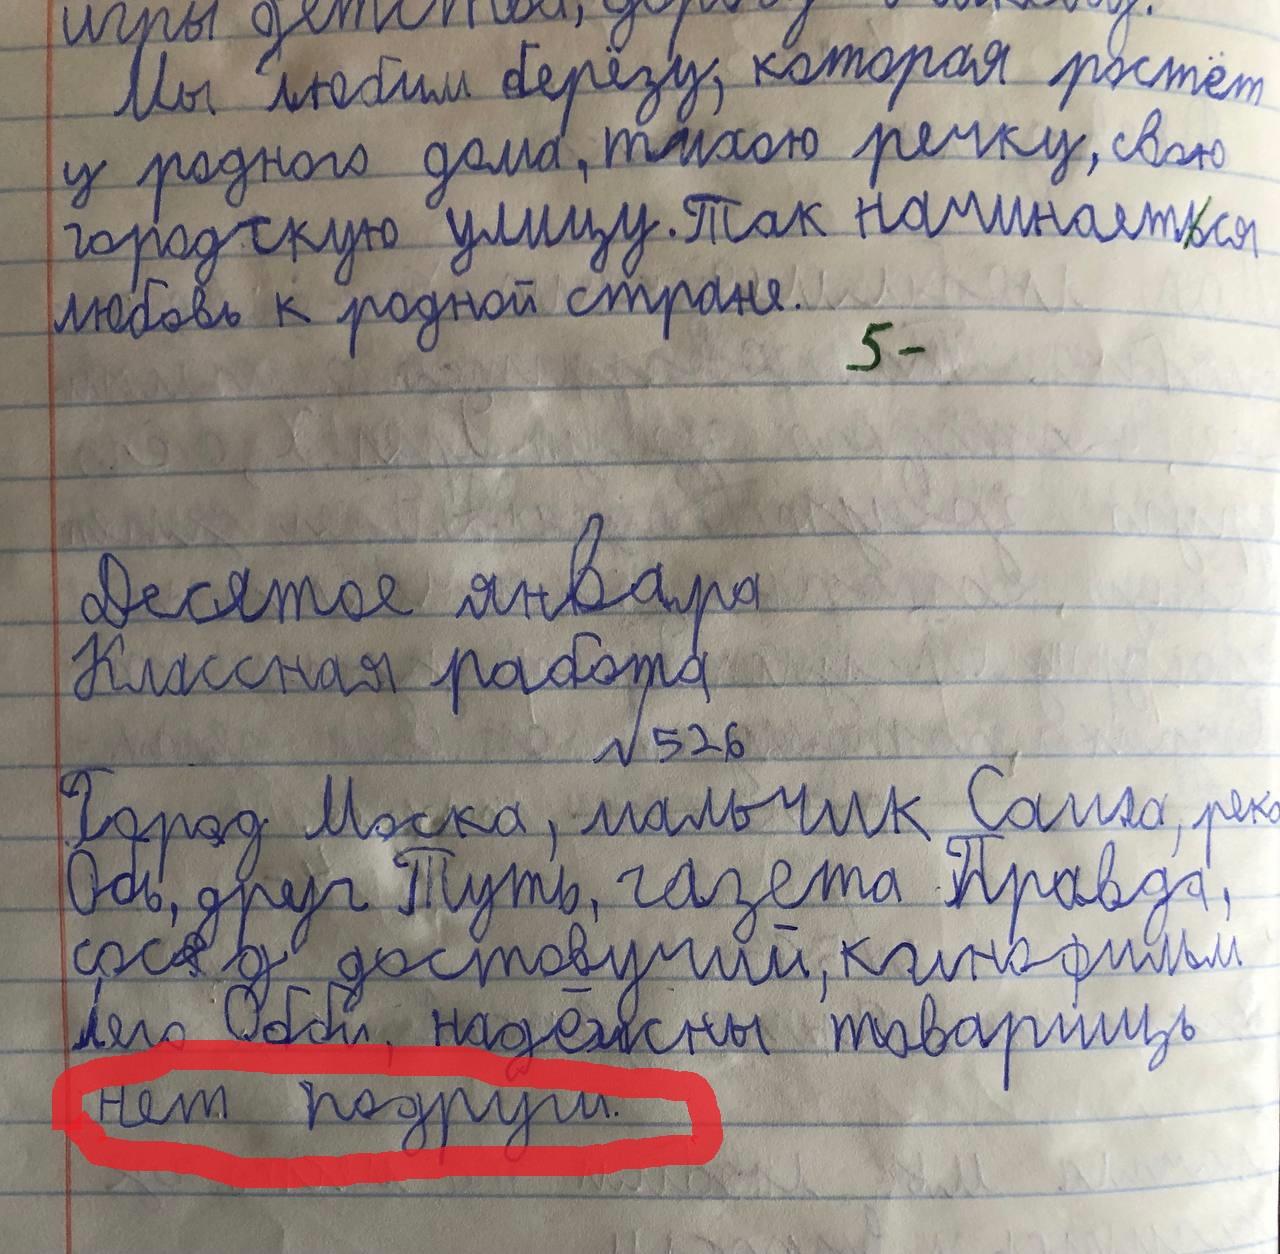 игры детства, дорогу в школу.
Мы любим берёзу, которая ростёт
у родного дома, тихою речку, свою
городскую улицу. Так начинаеться
любовь к родной стране.
5-
Десятое январа
Классная работа
№526
Город Моска, мальчик Саша, река
Обь, друг Путь, газета Правда,
сосяд достовучий, кинофильм
Лего Обби, надёжны товарищь
нет подруги.